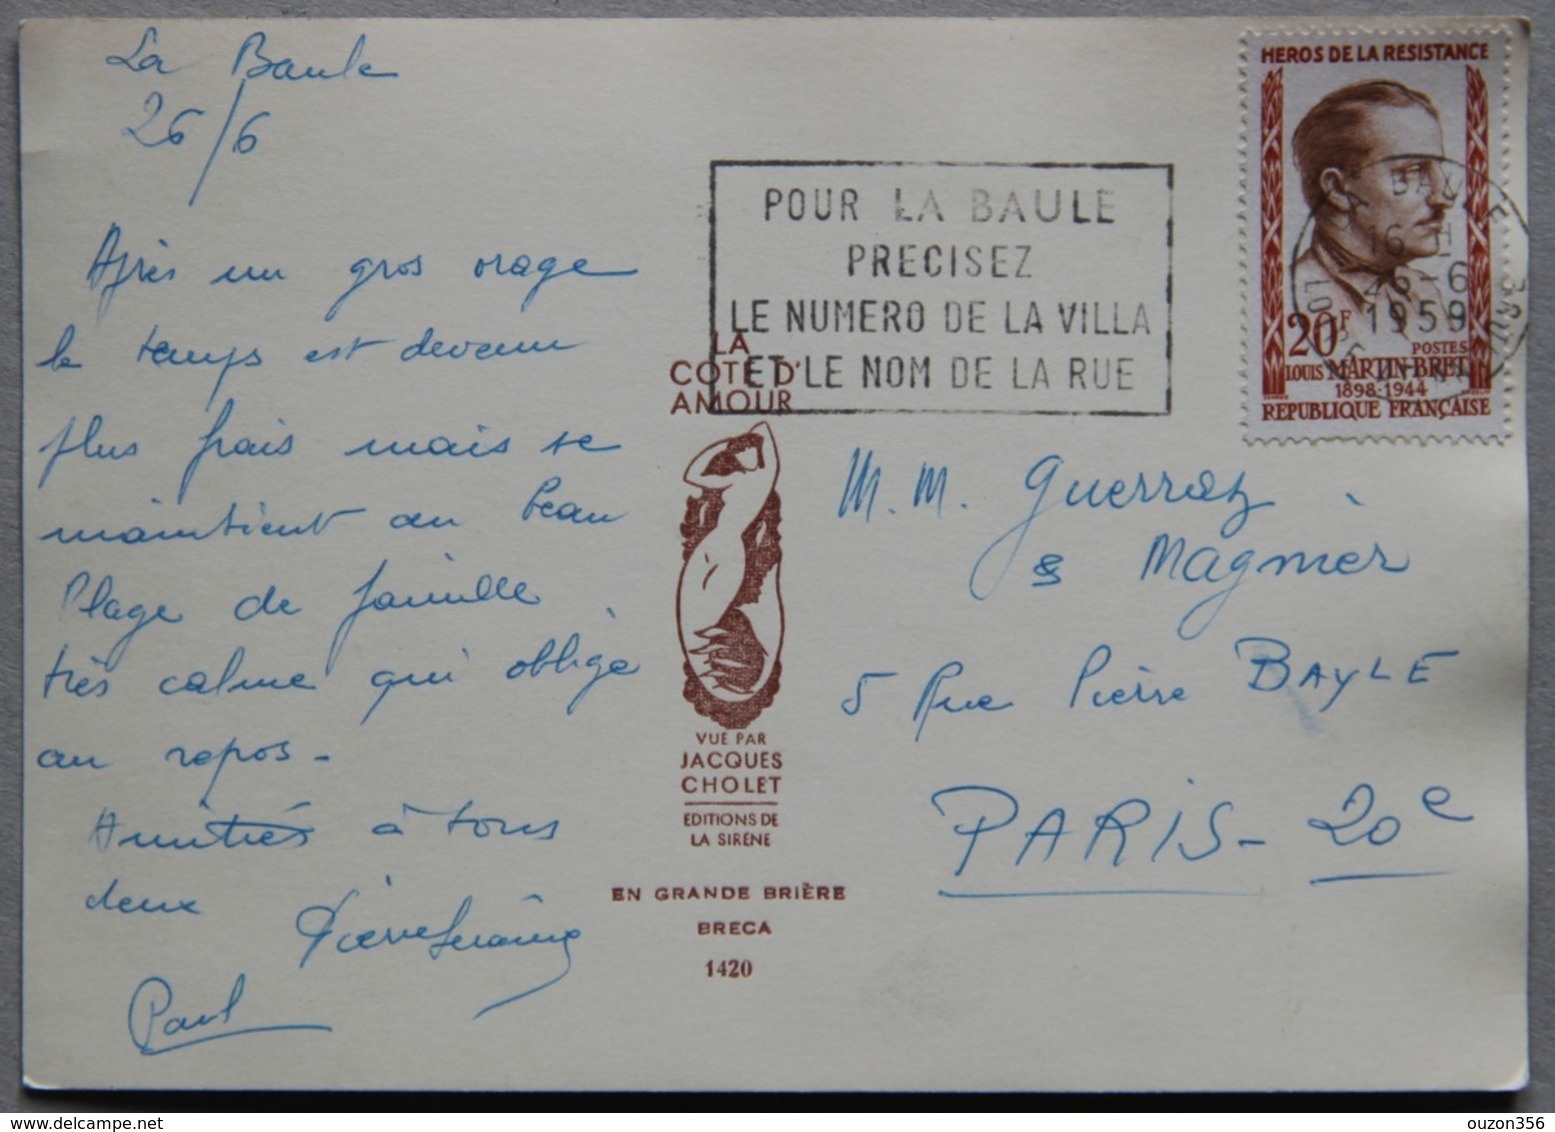 La Baule
26/6
Après un gros orage
le temps est devenu
plus frais mais se
maintient au beau
Plage de famille
très calme qui oblige
au repos -
Amitiés à tous
deux
Paul
POUR LA BAULE
PRECISEZ
LE NUMERO DE LA VILLA
ET LE NOM DE LA RUE
LA
COTE D'
AMOUR
VUE PAR
JACQUES
CHOLET
EDITIONS DE
LA SIRÈNE
EN GRANDE BRIÈRE
BRECA
1420
HEROS DE LA RESISTANCE
20F
POSTES
LOUIS MARTIN-BRET
1898-1944
REPUBLIQUE FRANÇAISE
LA BAULE
16 H
26-6
1959
LOIRE
M. M. Guerraz
& Magnier
5 Rue Pierre BAYLE
PARIS - 20e
ouzon356